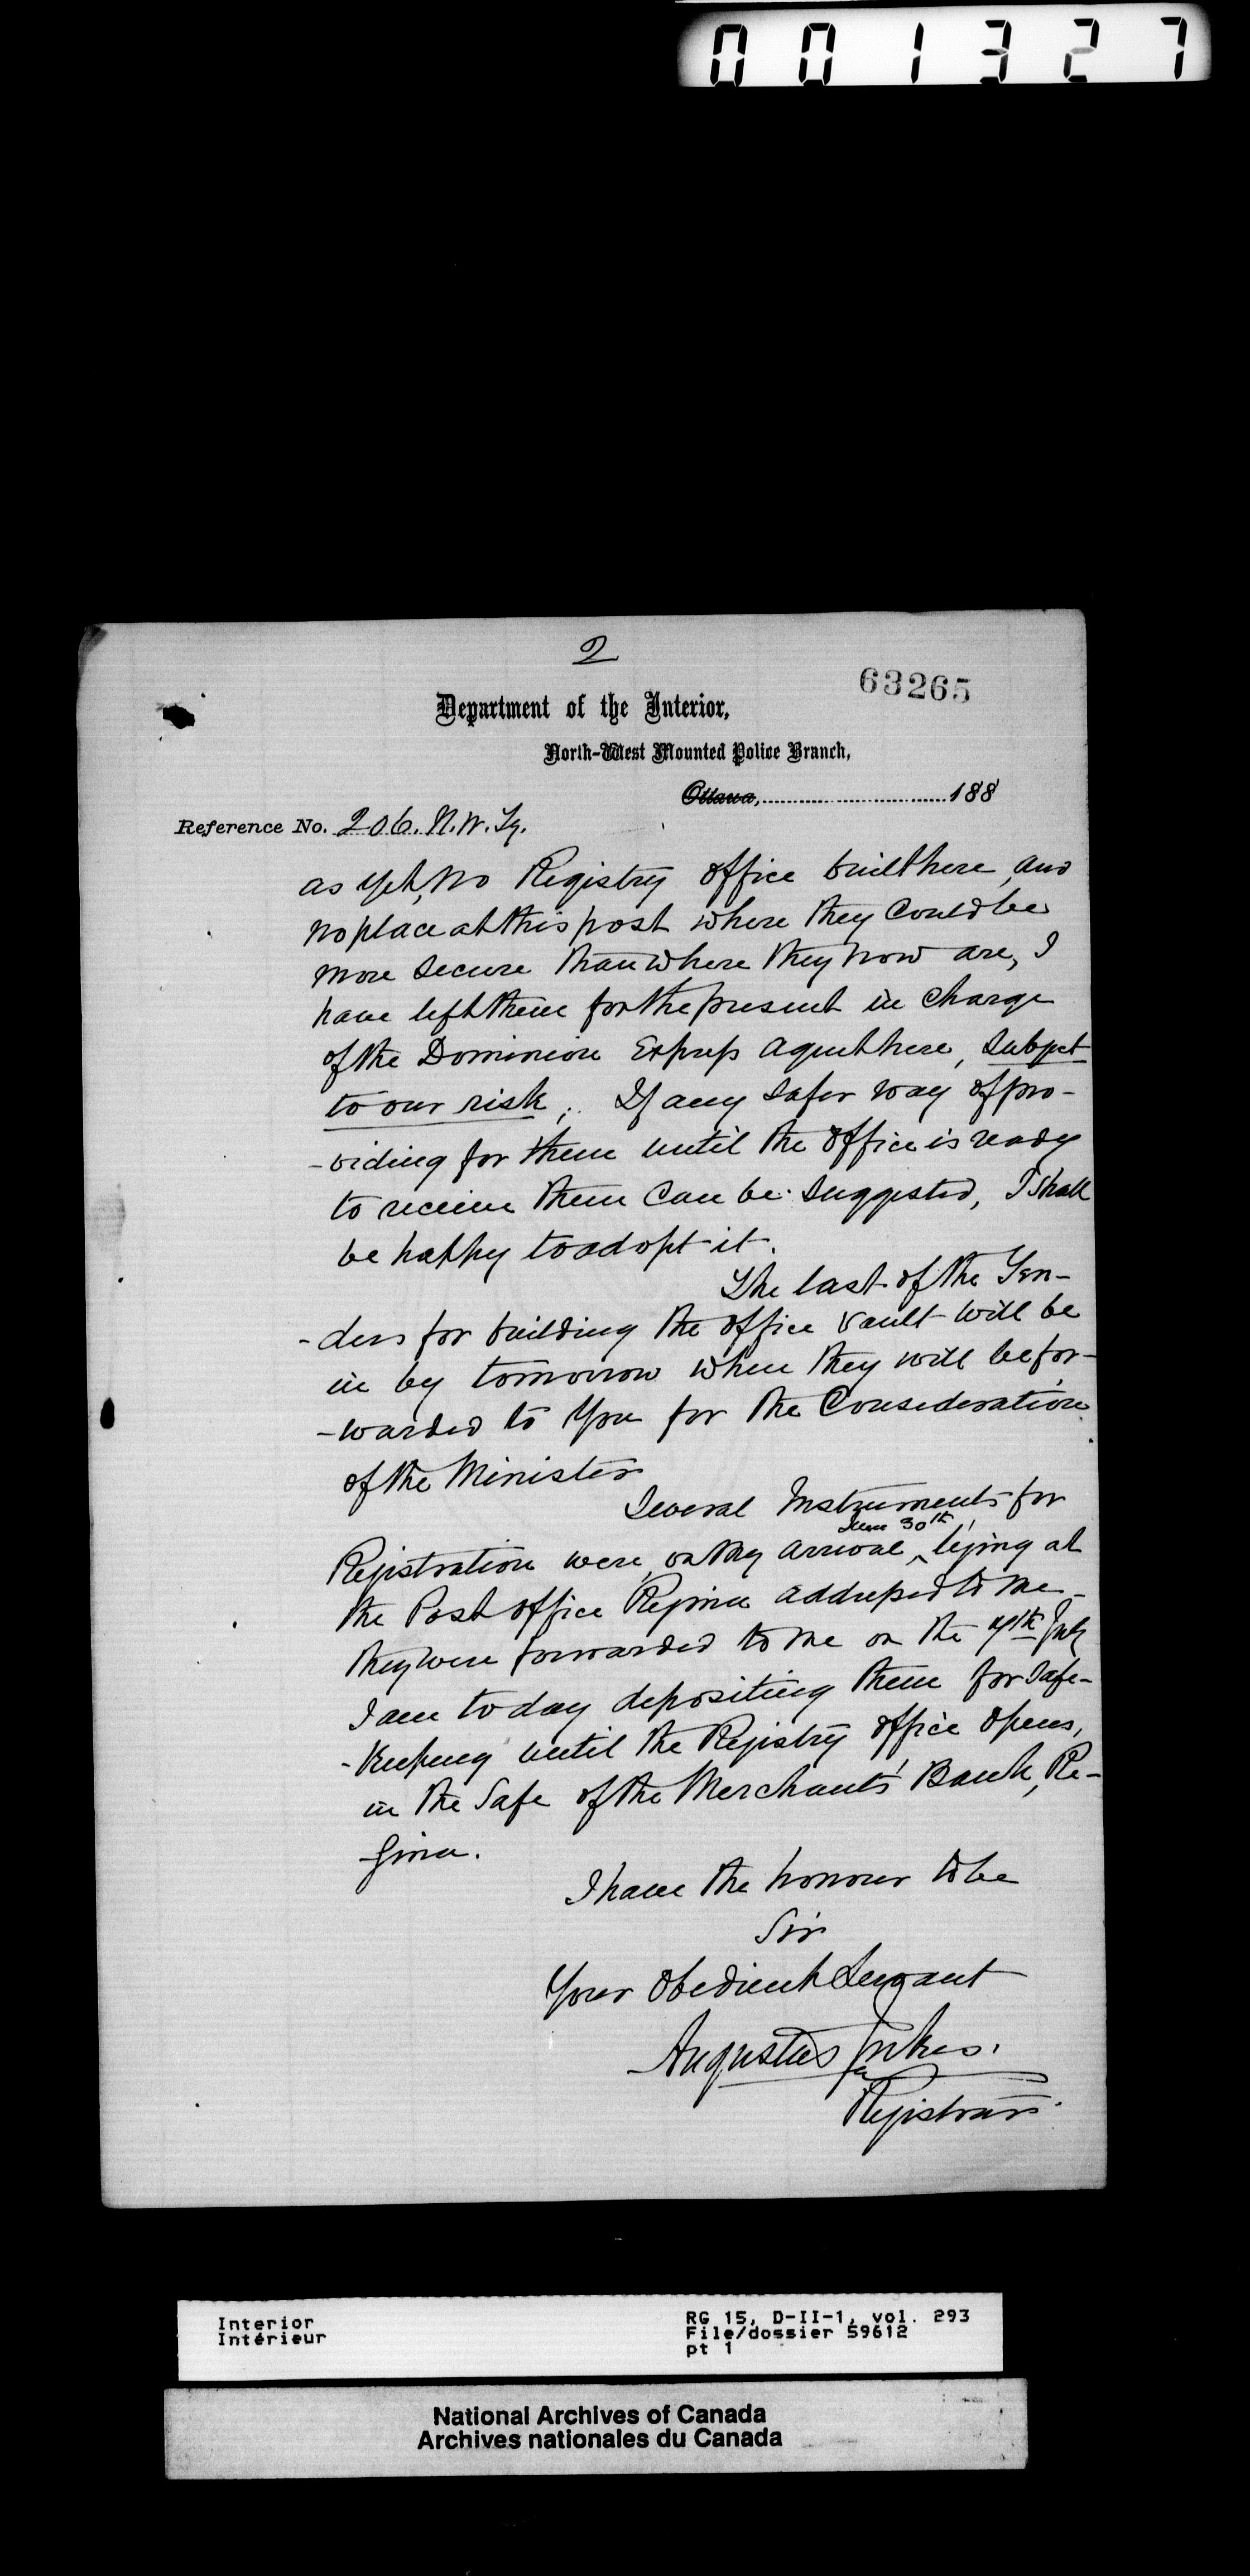 001327
2
63265
Department of the Interior,
North-West Mounted Police Branch,
Ottawa, 188
Reference No. 206. N.W.Ty.
as yet, no Registry office built here, and
no place at this post where they could be
more secure than where they now are, I
have left them for the present in charge
of the Dominion Express agent here, subject
to our risk; If any safer way of pro-
-viding for them until the office is ready
to receive them can be suggested, I shall
be happy to adopt it.
The last of the Ten-
-ders for building the office vault will be
in by tomorrow when they will be for-
-warded to you for the Consideration
of the Minister
Several Instruments for
June 30th
Registration were, on my arrival, ^ lying at
the Post office Regina addressed to me -
they were forwarded to me on the July
I am today depositing them for safe-
-keeping until the Registry office opens,
in the Safe of the Merchants' Bank, Re-
-gina.
I have the honour to be
Sir
Your obedient Servant
Augustus Jukes.
Registrar.
Interior
Intérieur
RG 15, D-II-1, vol. 293
File/dossier 59612
pt 1
National Archives of Canada
Archives nationales du Canada